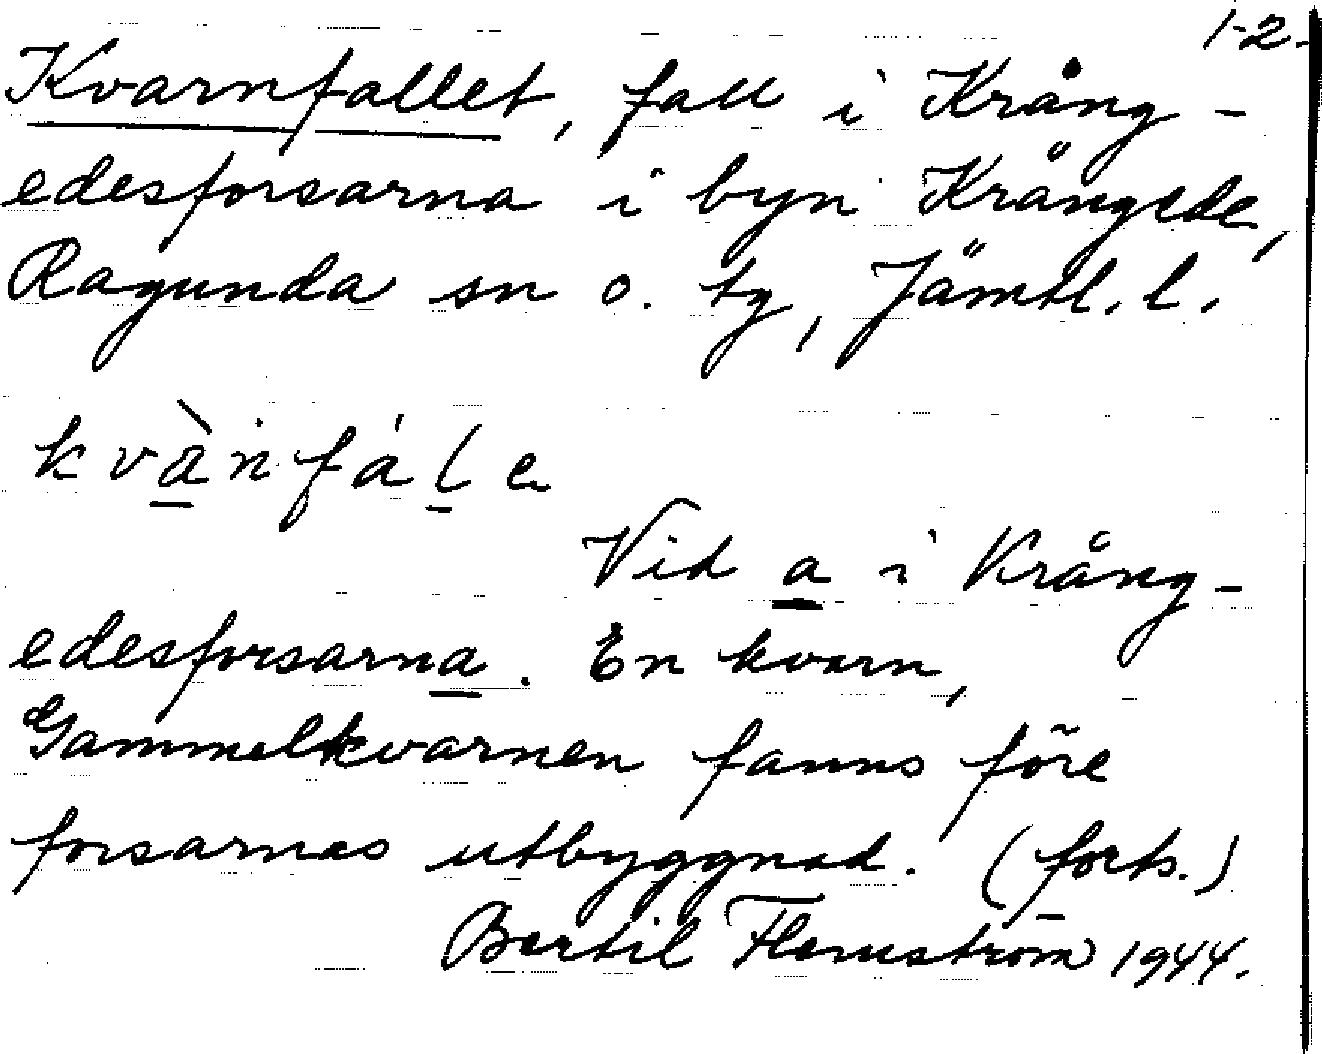 1-2.
Kvarnfallet, fall i Krång-
edesforsarna i byn Krångede,
Ragunda sn o. tg, Jämtl. l.
kvànfále
Vid a i Krång-
edesforsarna. En kvarn,
Gammelkvarnen fanns före
forsarnas utbyggnad. (forts.)
Bertil Flemström 1944.